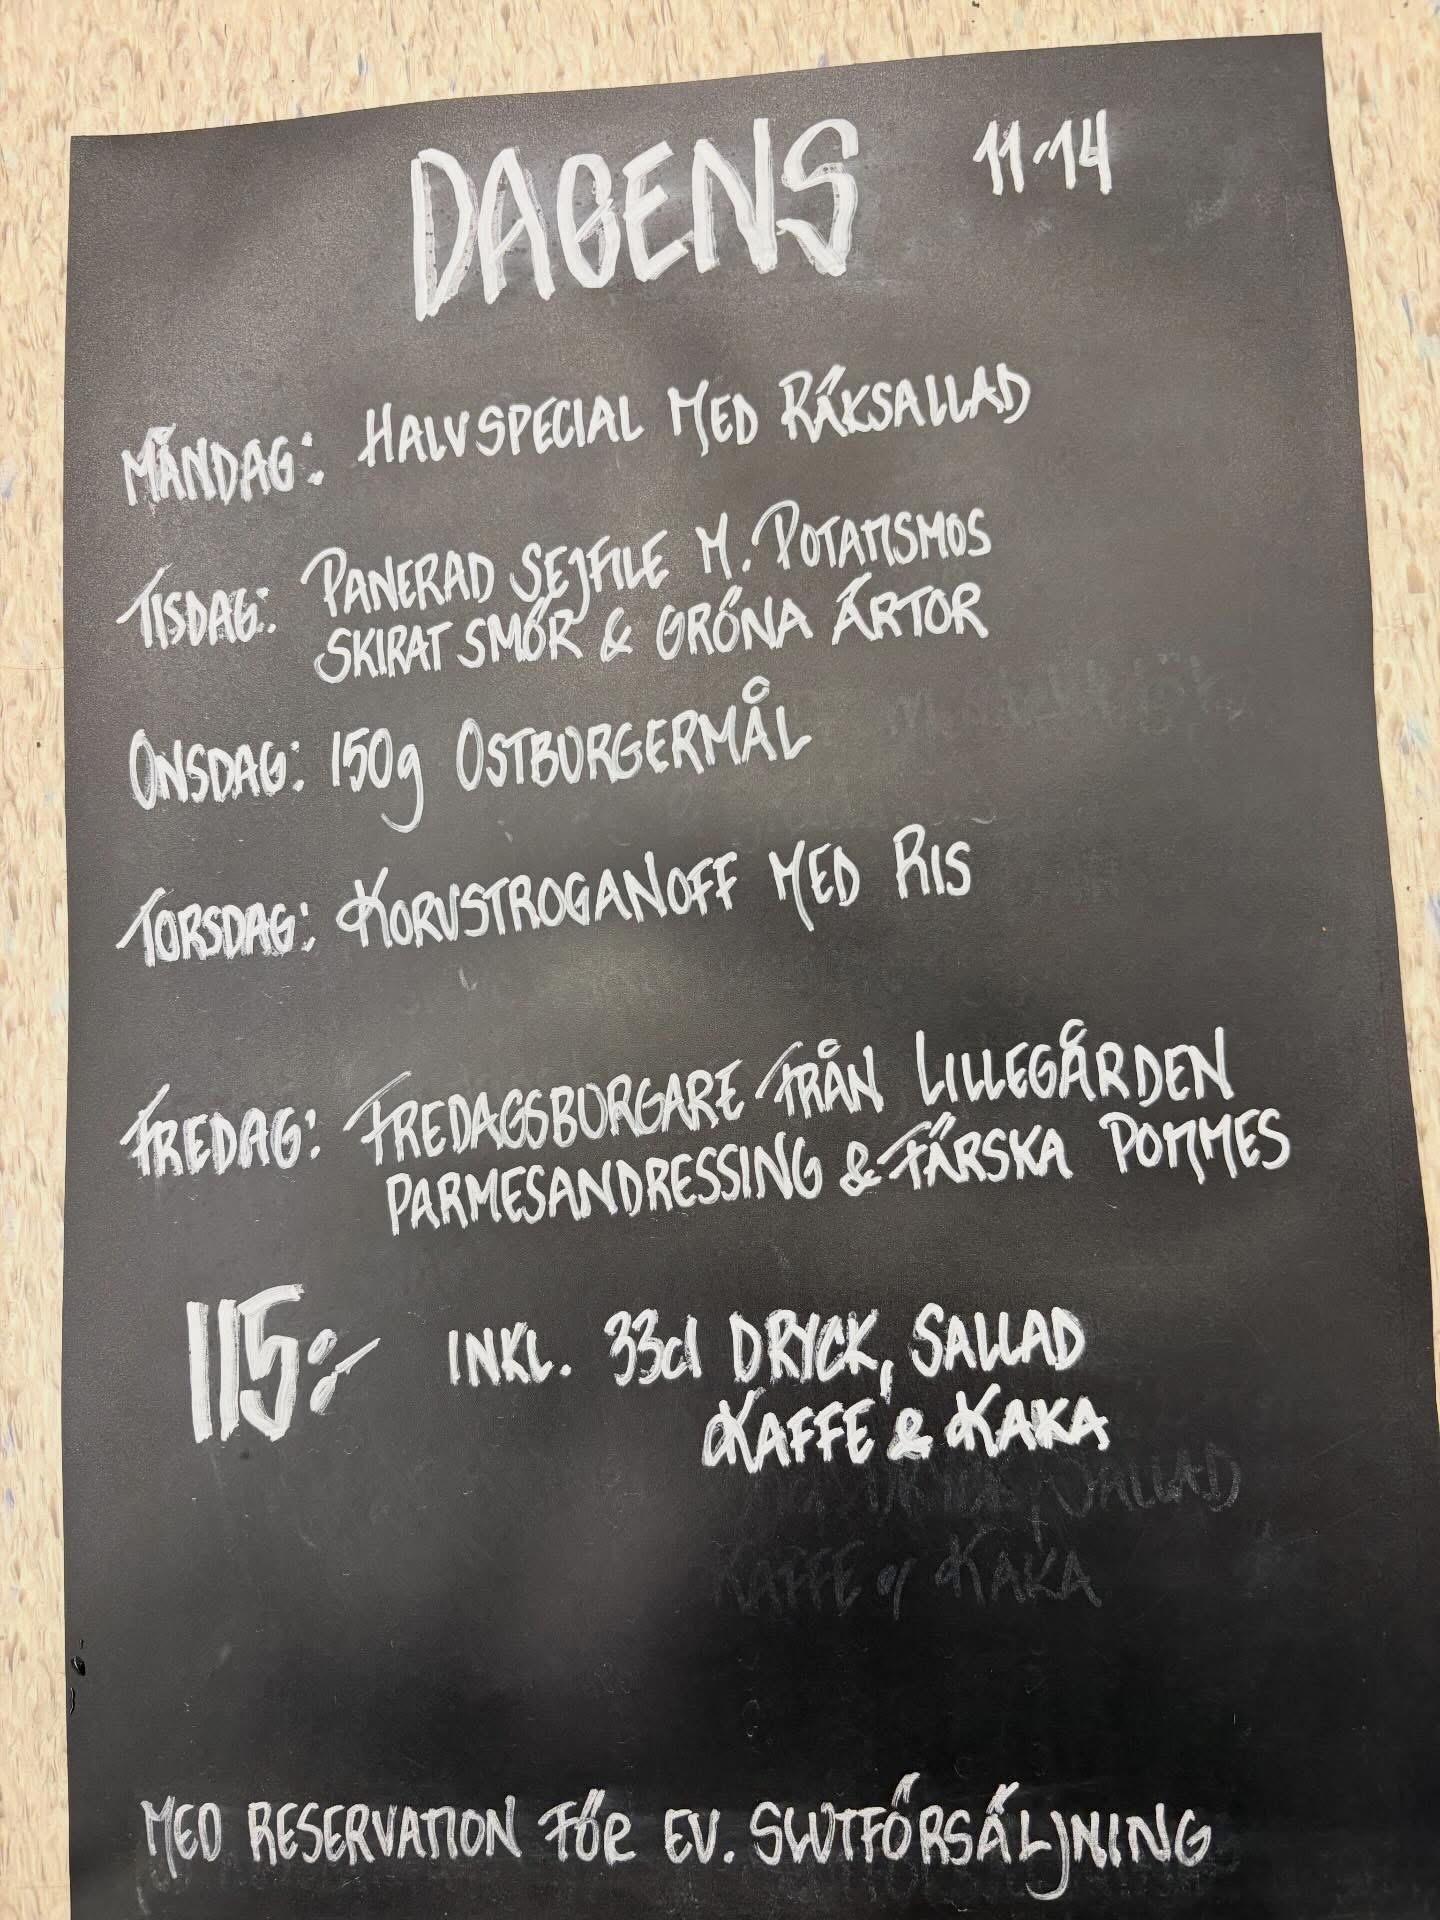 DAGENS 11-14
MÅNDAG: HALV SPECIAL MED RÄKSALLAD
TISDAG: PANERAD SEJFILE M. POTATISMOS
SKIRAT SMÖR & GRÖNA ÄRTOR
ONSDAG: 150g OSTBURGERMÅL
TORSDAG: KORVSTROGANOFF MED RIS
FREDAG: FREDAGSBURGARE FRÅN LILLEGÅRDEN
PARMESANDRESSING & FÄRSKA POMMES
115:- INKL. 33cl DRYCK, SALLAD
KAFFE & KAKA
SALLAD
KAFFE & KAKA
MED RESERVATION FÖR EV. SLUTFÖRSÄLJNING